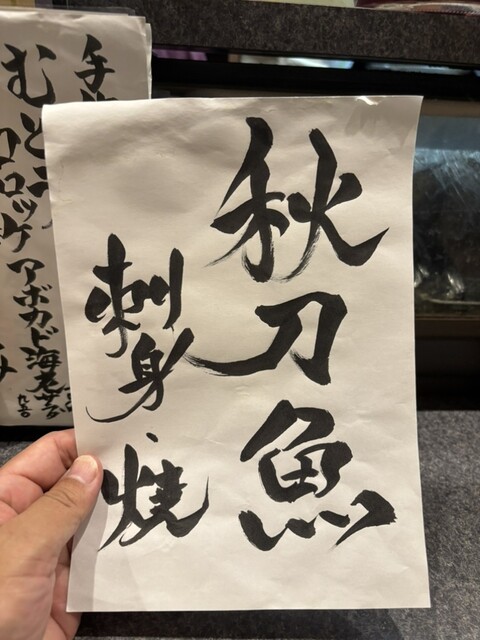 秋刀魚
刺身・焼
コロッケ
アボカド海老